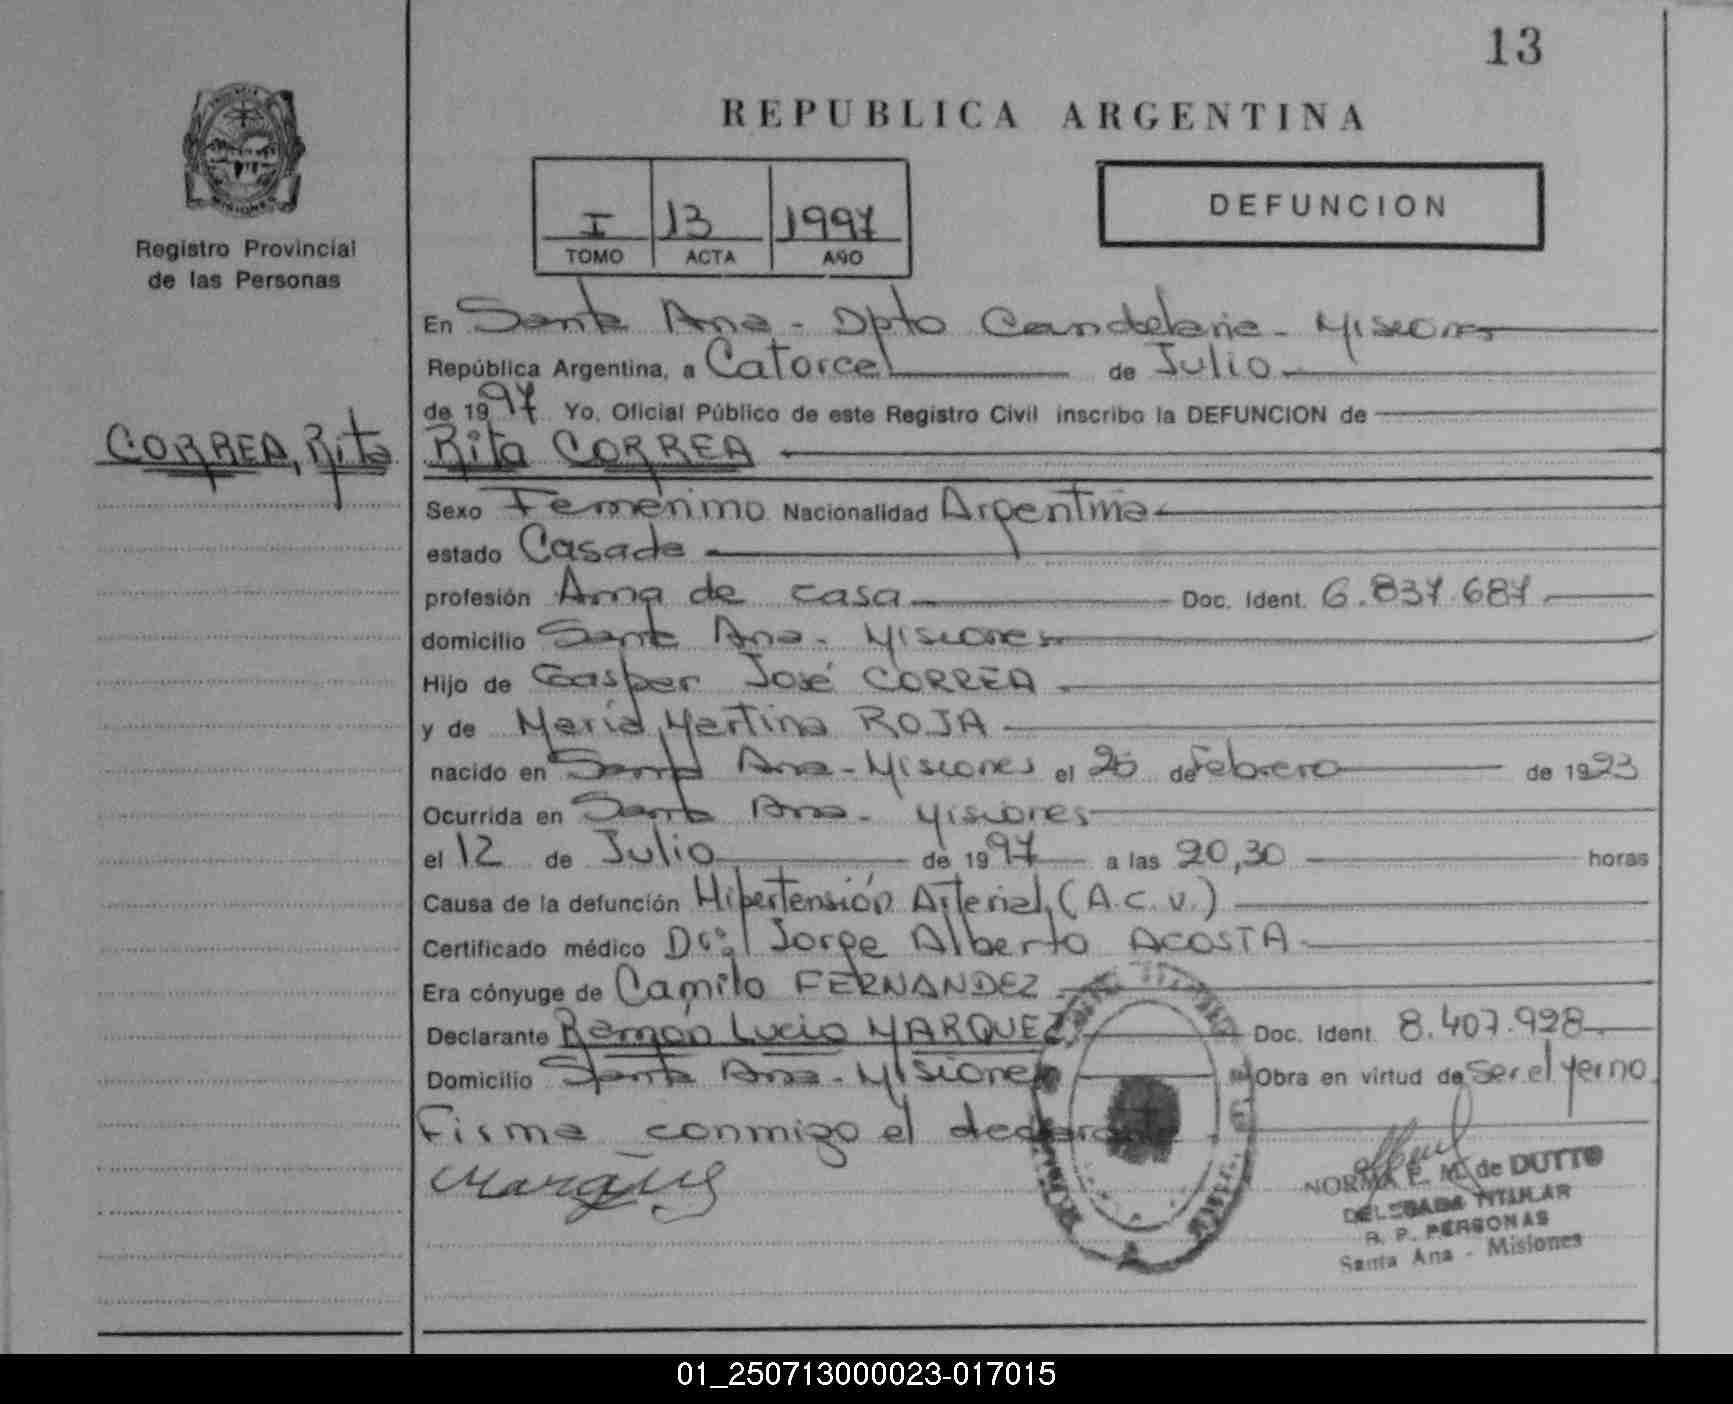 13
REPUBLICA ARGENTINA
I 13 1997
TOMO ACTA AÑO
DEFUNCION
Registro Provincial
de las Personas
En Santa Ana - Dpto Candelaria - Misiones
República Argentina, a Catorce de Julio
de 1997 Yo, Oficial Público de este Registro Civil inscribo la DEFUNCION de
CORREA, Rita
Rita CORREA
Sexo Femenino Nacionalidad Argentina
estado Casada
profesión Ama de casa Doc. Ident. 6.837.687
domicilio Santa Ana - Misiones
Hijo de Gaspar José CORREA
y de María Martina ROJA
nacido en Santa Ana - Misiones el de Febrero de 1923
Ocurrida en Santa Ana - Misiones
el 12 de Julio de 1997 a las 20,30 horas
Causa de la defunción Hipertensión Arterial, (A.C.V.)
Certificado médico Dr. Jorge Alberto ACOSTA
Era cónyuge de Camilo FERNANDEZ
Declarante Ramón Lucio MARQUEZ Doc. Ident. 8.407.928
Domicilio Santa Ana - Misiones Obra en virtud de Ser el yerno
Firma conmigo el declarante
Marquez
NORMA E. M. de DUTTO
DELEGADA TITULAR
R. P. PERSONAS
Santa Ana - Misiones
01_250713000023-017015